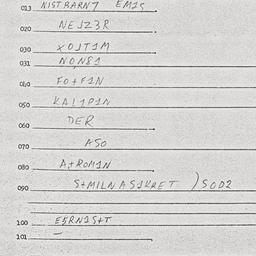 013 NISTBARN7 EM1S
020 NEJZ3R
030 XOJT1M
031 NONS1
040 FO+F1N
050 KALIP1N
060 DER
070 ASO
080 A+ROM1N
090 S+MILNASIKRET ) SOD2
100 ESRN1S+T
101 —